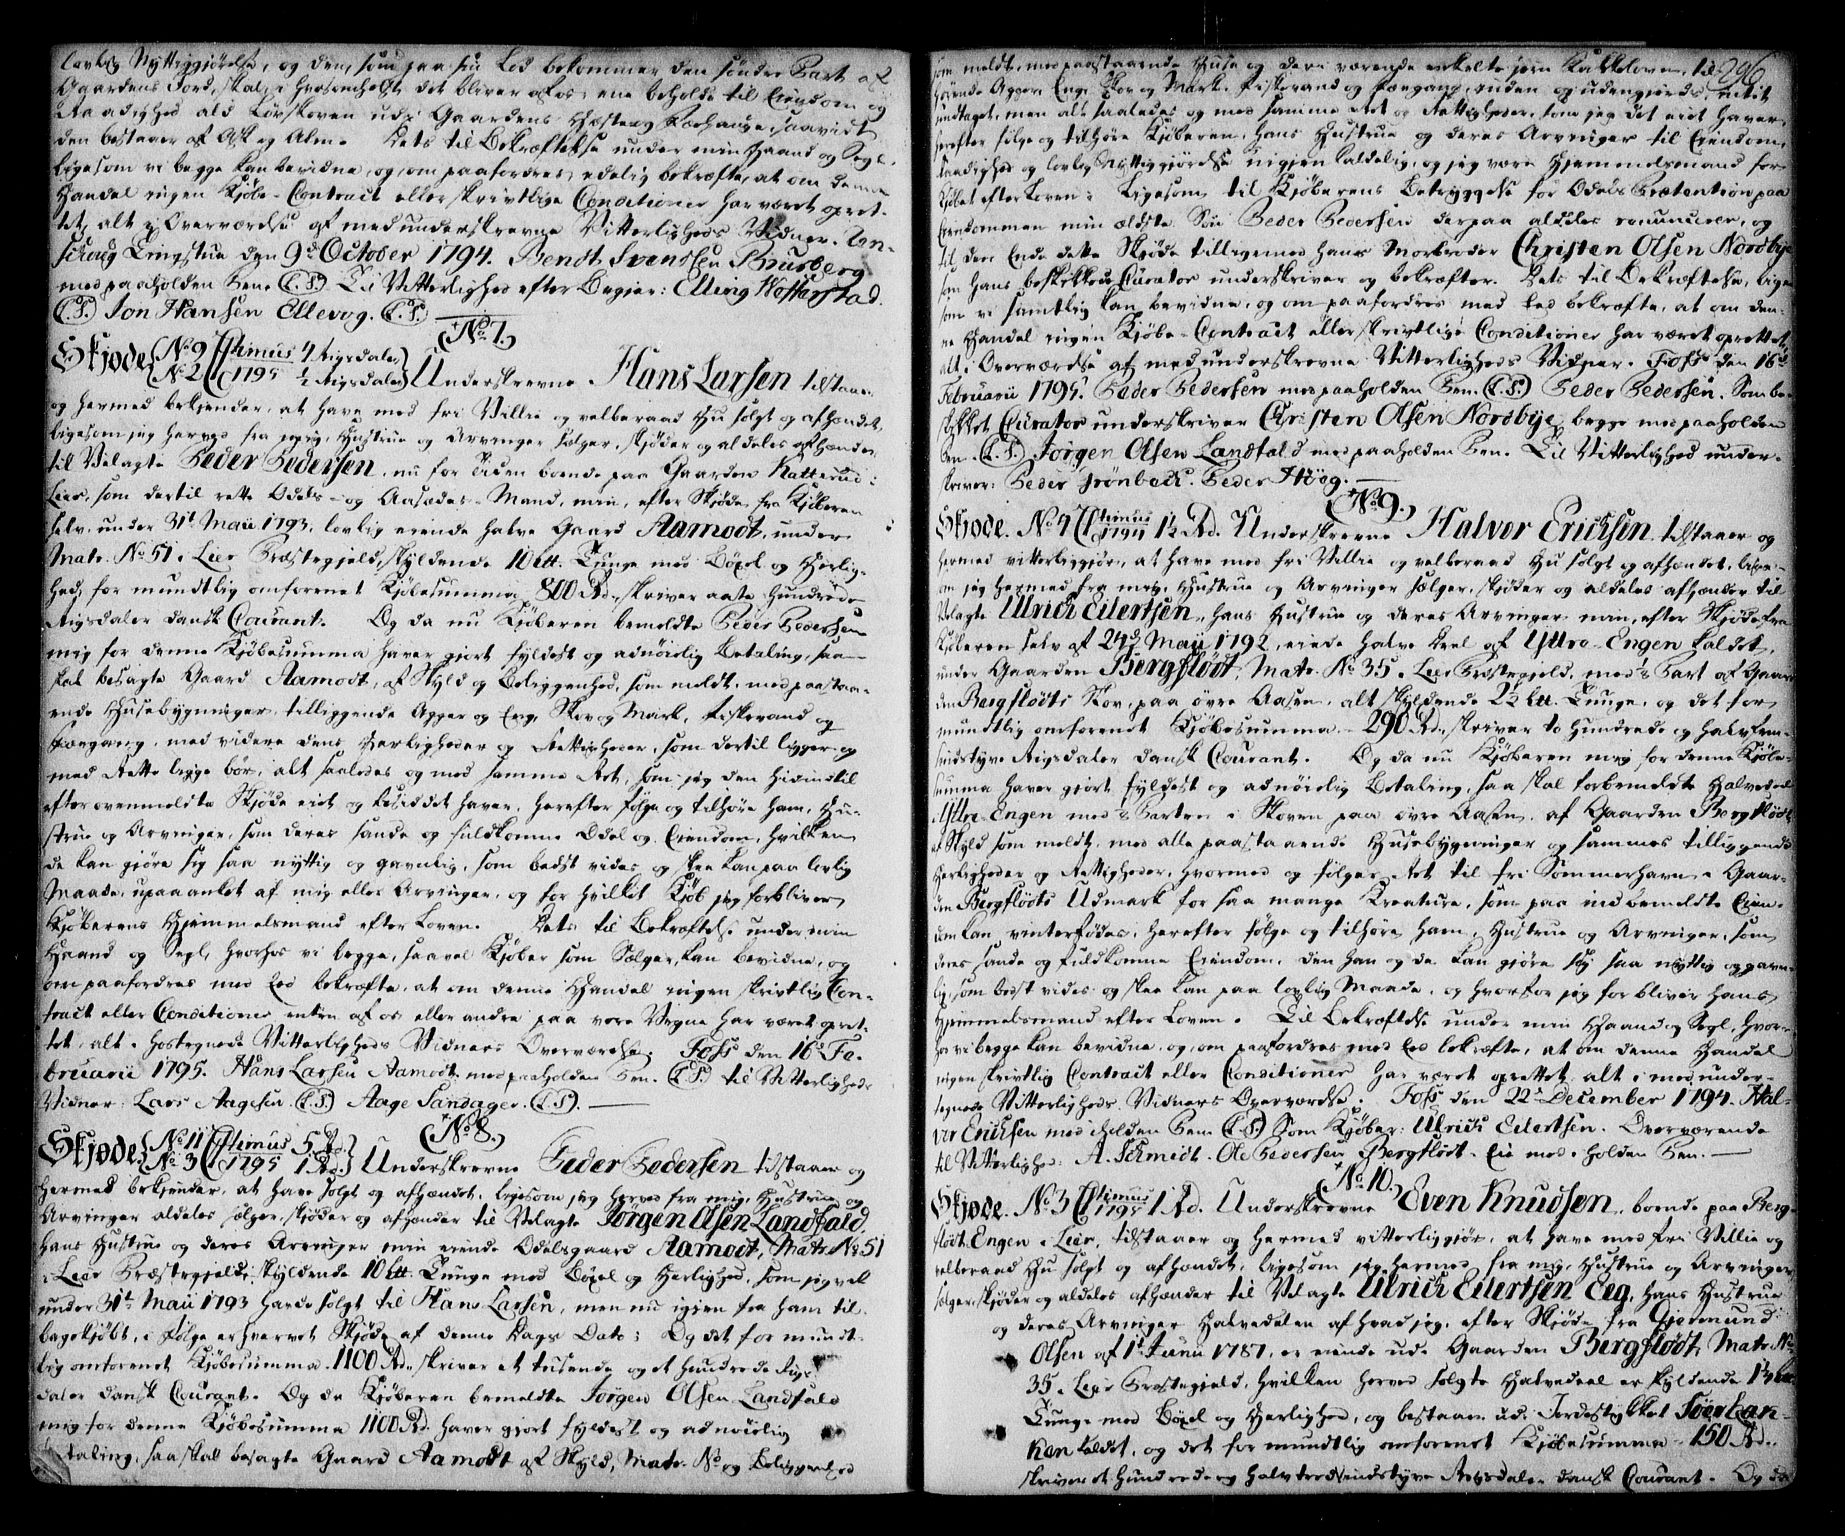 lovlig Nyttiggjørelse, og den, som paa sin Lod bekommer den søndre Part af
Gaardens Jord, skal, i hvorvel det bliver os, ene beholde til Eiendom og
Raadighed ald Løvskoven udi Gaardens Havn, saavidt
den bestaaer af Ask og Alm. Dets til Bekræftelse under min Haand og Segl,
ligesom vi begge kan bevidne, og, om paafordres, edelig bekræfte, at om denne
Handel ingen Kjøbe-Contract eller skrivtlige Conditioner har været opret-
tet, alt i Overværelse af medunderskrevne Vitterligheds Vidner.
Tingstue den 9de October 1794. Bendt Svendsen Bursberg
med paaholden Pen. (L.S.) Til Vitterlighed efter Begjær: Elling Wosterstad.
(L.S.) Jon Hansen Ellevog. (L.S.)
No 7.
Skjøde {No 9 / No 2} {Primus / 1795} {4 Rigsdaler / ½ Rigsdaler} Underskrevne Hans Larsen tilstaaer
og hermed bekjender, at have med frie Villie og velberaad Hu solgt og afhændet,
ligesom jeg herved fra mig, Hustrue og Arvinger sælger, skjøder og aldeles afhænder
til Velagte Peder Pedersen, nu for Tiden boende paa Gaarden Katterud i
Lier, som dertil rette Odels- og Aasædes-Mand, min, efter Skjøde fra Kjøberen
selv under 31te Maii 1793, lovlig eiende halve Gaard Aamodt, under
Matr. No 51 i Lier Præstegjeld, skyldende 10 ℔ Tunge med Bøxel og Herlig-
hed, for mundtlig omforenet Kjøbesumma 800 Rd., skriver aatte Hundrede
Rigsdaler dansk Courant. Og da nu Kjøberen bemeldte Peder Pedersen
mig for denne Kjøbesumma haver giort fyldest og adnøielig Betaling, saa
skal besagte Gaard Aamodt, af Skyld og Beliggenhed, som meldt, med paastaa-
ende Husebygninger, tilliggende Agger og Eng, Skov og Mark, Fiskevand og
Fægang, med videre dens Herligheder og Rettigheder, som dertil ligger og
med Rette ligge bør, alt saaledes og med samme Ret, som jeg den hidindtil
efter ovenmeldte Skjøde eiet og besiddet haver, herefter følge og tilhøre ham, Hu-
strue og Arvinger, som deres sande og fuldkomne Odel og Eiendom, hvilken
de kan gjøre sig saa nyttig og gavnlig, som bedst vides og skee kan paa lovlig
Maade, upaaanket af mig eller Arvinger, og for hvilket Kjøb jeg forbliver
Kjøberens Hjemmelsmand efter Loven. Dets til Bekræftelse under min
Haand og Segl, hvorhos vi begge, saavel Kjøber som Sælger, kan bevidne, og
om paafordres med Eed bekræfte, at om denne Handel ingen skrivtlig Con-
tract eller Conditioner enten af os eller andre paa vore Vegne har været opret-
tet, alt i hostegnede Vitterligheds Vidners Overværelse. Foss den 16de Fe-
bruarii 1795. Hans Larsen Aamodt med paaholden Pen. (L.S.) Til Vitterligheds
Vidner: Lars Aagesen. (L.S.) Aage Sandager. (L.S.)
No 8.
Skjøde {No 11 / No 3} {Primus / 1795} {5 Rd. / 1 Rd.} Underskrevne Peder Pedersen tilstaaer og
hermed bekjender, at have solgt og afhændet, ligesom jeg herved fra mig, Hustrue og
Arvinger aldeles sælger, skjøder og afhænder til Velagte Jørgen Olsen Landfald,
hans Hustrue og deres Arvinger min eiende Odelsgaard Aamodt, Matr. No 51
i Lier Præstegjeld, skyldende 10 ℔ Tunge med Bøxel og Herlighed, som jeg vel
under 31te Maii 1793 havde solgt til Hans Larsen, men nu igjen fra ham til-
bagekjøbt, i Følge erhvervet Skjøde af denne Dags Dato; Og det for mundt-
lig omforenet Kjøbesumma 1100 Rd., skriver et tusende og et hundrede Rigs-
daler dansk Courant. Og da Kjøberen bemeldte Jørgen Olsen Landfald
mig for denne Kjøbesumma 1100 Rd. haver gjort fyldest og adnøielig
Betaling, saa skal besagte Gaard Aamodt af Skyld, Matr. No og Beliggenhed
296
som meldt, med paastaaende Huse og deri værende enkelte jern Kakkelovn, til-
hørende Agger, Eng, Skov og Mark, Fiskevand og Fægang, inden og uden gjerdes, intet
undtaget, men alt saaledes og med samme Ret og Rettigheder, som jeg det eiet haver,
herefter følge og tilhøre Kjøberen, hans Hustrue og deres Arvinger til Eiendom,
Raadighed og lovlig Nyttiggjørelse uigjenkaldelig, og jeg være Hjemmelsmand for
Kjøbet efter Loven; Ligesom til Kjøberens Betryggelse for Odels Prætention paa
Eiendommen min ældste Søn Peder Pedersen derpaa aldeles renuncierer, og
til den Ende dette Skjøde tilligemed hans Morbroder Christen Olsen Nordbye
som hans beskikkede Curator underskriver og bekræfter. Dets til Bekræftelse, lige-
som vi samtlig kan bevidne, og om paafordres med Eed bekræfte, at om den-
ne Handel ingen Kjøbe-Contract eller skrivtlige Conditioner har været oprettet,
alt i Overværelse af medunderskrevne Vitterligheds Vidner. Foss den 16de
Februarii 1795. Peder Pedersen med paaholden Pen. (L.S.) Peder Pedersen. Som be-
skikket Curator underskriver Christen Olsen Nordbye, begge med paaholden
Pen. (L.S.) Jørgen Olsen Landfald med paaholden Pen. Til Vitterlighed under-
skriver: Peder Grønbech. Peder Høeg.
No 9.
Skjøde. No 4 {Primus / 1794} 1½ Rd. Underskrevne Halvor Ericksen tilstaaer og
hermed vitterliggjør, at have med fri Villie og velberaad Hu solgt og afhændet, liges-
om jeg hermed fra mig, Hustrue og Arvinger sælger, skjøder og aldeles afhænder til
Velagte Ulrich Eilertsen, hans Hustrue og deres Arvinger min, efter Skjøde fra
Kjøberen selv af 24de Maii 1792, eiende halve Deel af Yttre-Engen kaldet,
under Gaarden Bergflødt, Matr. No 35 i Lier Præstegjeld, med ⅛ Part af Gaar-
den Bergflødts Skov, paa øvre Aasen, alt skyldende 2½ ℔ Tunge, og det for
mundtlig omforenet Kjøbesumma 290 Rd., skriver to Hundrede og halvfem-
sindstyve Rigsdaler dansk Courant. Og da nu Kjøberen mig for denne Kjøbe-
summa haver gjort fyldest og adnøielig Betaling, saa skal forbemeldte Halvedeel
Yttre-Engen med ⅛ Parten i Skoven paa øvre Aasen, af Gaarden Bergflødt,
af Skyld som meldt, med alle paastaaende Husebygninger og sammes tilliggende
Herligheder og Rettigheder, hvormed og følger Ret til fri Sommerhavn i Gaar-
den Bergflødts Udmark for saa mange Kreature, som paa indbemeldte Eien-
dom kan vinterfødes, herefter følge og tilhøre ham, Hustrue og Arvinger, som
deres sande og fuldkomne Eiendom, den han og de kan gjøre sig saa nyttig og gavn-
lig, som bedst vides og skee kan paa lovlig Maade, og hvorfor jeg forbliver hans
Hjemmelsmand efter Loven. Til Bekræftelse under min Haand og Segl, hvor-
hos vi begge kan bevidne, og, om paafordres med Eed bekræfte, at om denne Handel
ingen skrivtlig Contract eller Conditioner har været oprettet, alt i medunder-
tegnede Vitterligheds Vidners Overværelse. Foss den 22de December 1794. Hal-
vor Ericksen med iholden Pen. (L.S.) Som Kjøber: Ulrich Eilertsen. Overværende
til Vitterlighed: A. Schmidt. Ole Pedersen Bergflødt-Eie med iholden Pen.
No 10.
Skjøde. No 3 {Primus / 1795} 1 Rd. Underskrevne Even Knudsen, boende paa Berg-
flødt-Engen i Lier, tilstaaer og hermed vitterliggjør, at have med fri Villie og
velberaad Hu solgt og afhændet, ligesom jeg hermed fra mig, Hustrue og Arvinger
sælger, skjøder og aldeles afhænder til Velagte Ulrich Eilertsen Eeg, hans Hustrue
og deres Arvinger Halvedelen af hvad jeg, efter Skjøde fra Gjedmund
Olsen af 1te Junii 1787, er eiende udi Gaarden Bergflødt, Matr. No
35 i Lier Præstegjeld, hvilken herved solgte Halvedeel er skyldende 1½ ℔
Tunge med Bøxel og Herlighed, og bestaaer udi Jordestykket Sverkan-
ken kaldet, og det for mundtlig omforenet Kjøbesumma 150 Rd.,
skriver et Hundrede og halvtredsindstyve Rigsdaler dansk Courant. Og da